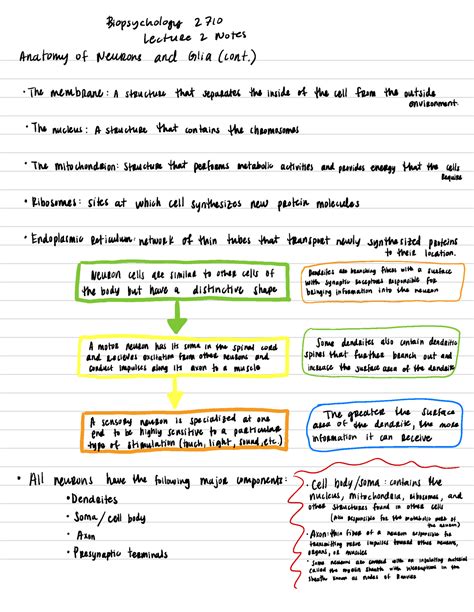 Biopsychology 2710
Lecture 2 Notes
Anatomy of Neurons and Glia (cont.)
• The membrane: A structure that separates the inside of the cell from the outside
environment.
• The nucleus: A structure that contains the chromosomes
• The mitochondrion: structure that performs metabolic activities and provides energy that the cells
require
• Ribosomes: sites at which cell synthesizes new protein molecules
• Endoplasmic Reticulum: network of thin tubes that transport newly synthesized proteins
to their location.
Neuron cells are similar to other cells of
the body but have a distinctive shape
Dendrites are branching fibers with a surface
with synaptic receptors responsible for
bringing information into the neuron
A motor neuron has its soma in the spinal cord
and receives excitation from other neurons and
conduct impulses along its axon to a muscle
Some dendrites also contain dendritic
spines that further branch out and
increase the surface area of the dendrite
A sensory neuron is specialized at one
end to be highly sensitive to a particular
type of stimulation (touch, light, sound, etc.)
The greater the surface
area of the dendrite, the more
information it can receive
• All neurons have the following major components:
• Dendrites
• Soma/cell body
• Axon
• Presynaptic terminals
• Cell body/soma: contains the
nucleus, mitochondria, ribosomes, and
other structures found in other cells
(also responsible for the metabolic work of
the neuron)
• Axon: thin fiber of a neuron responsible for
transmitting nerve impulses toward other neurons,
organs, or muscles
• Some neurons are covered with an insulating material
called the myelin sheath with interruptions in the
sheath known as nodes of Ranvier